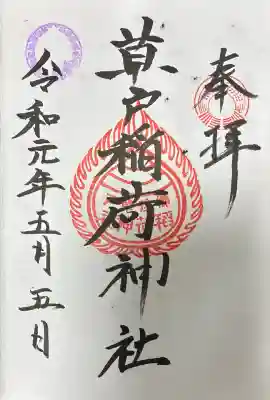 奉拝
草戸稲荷神社
令和元年五月五日